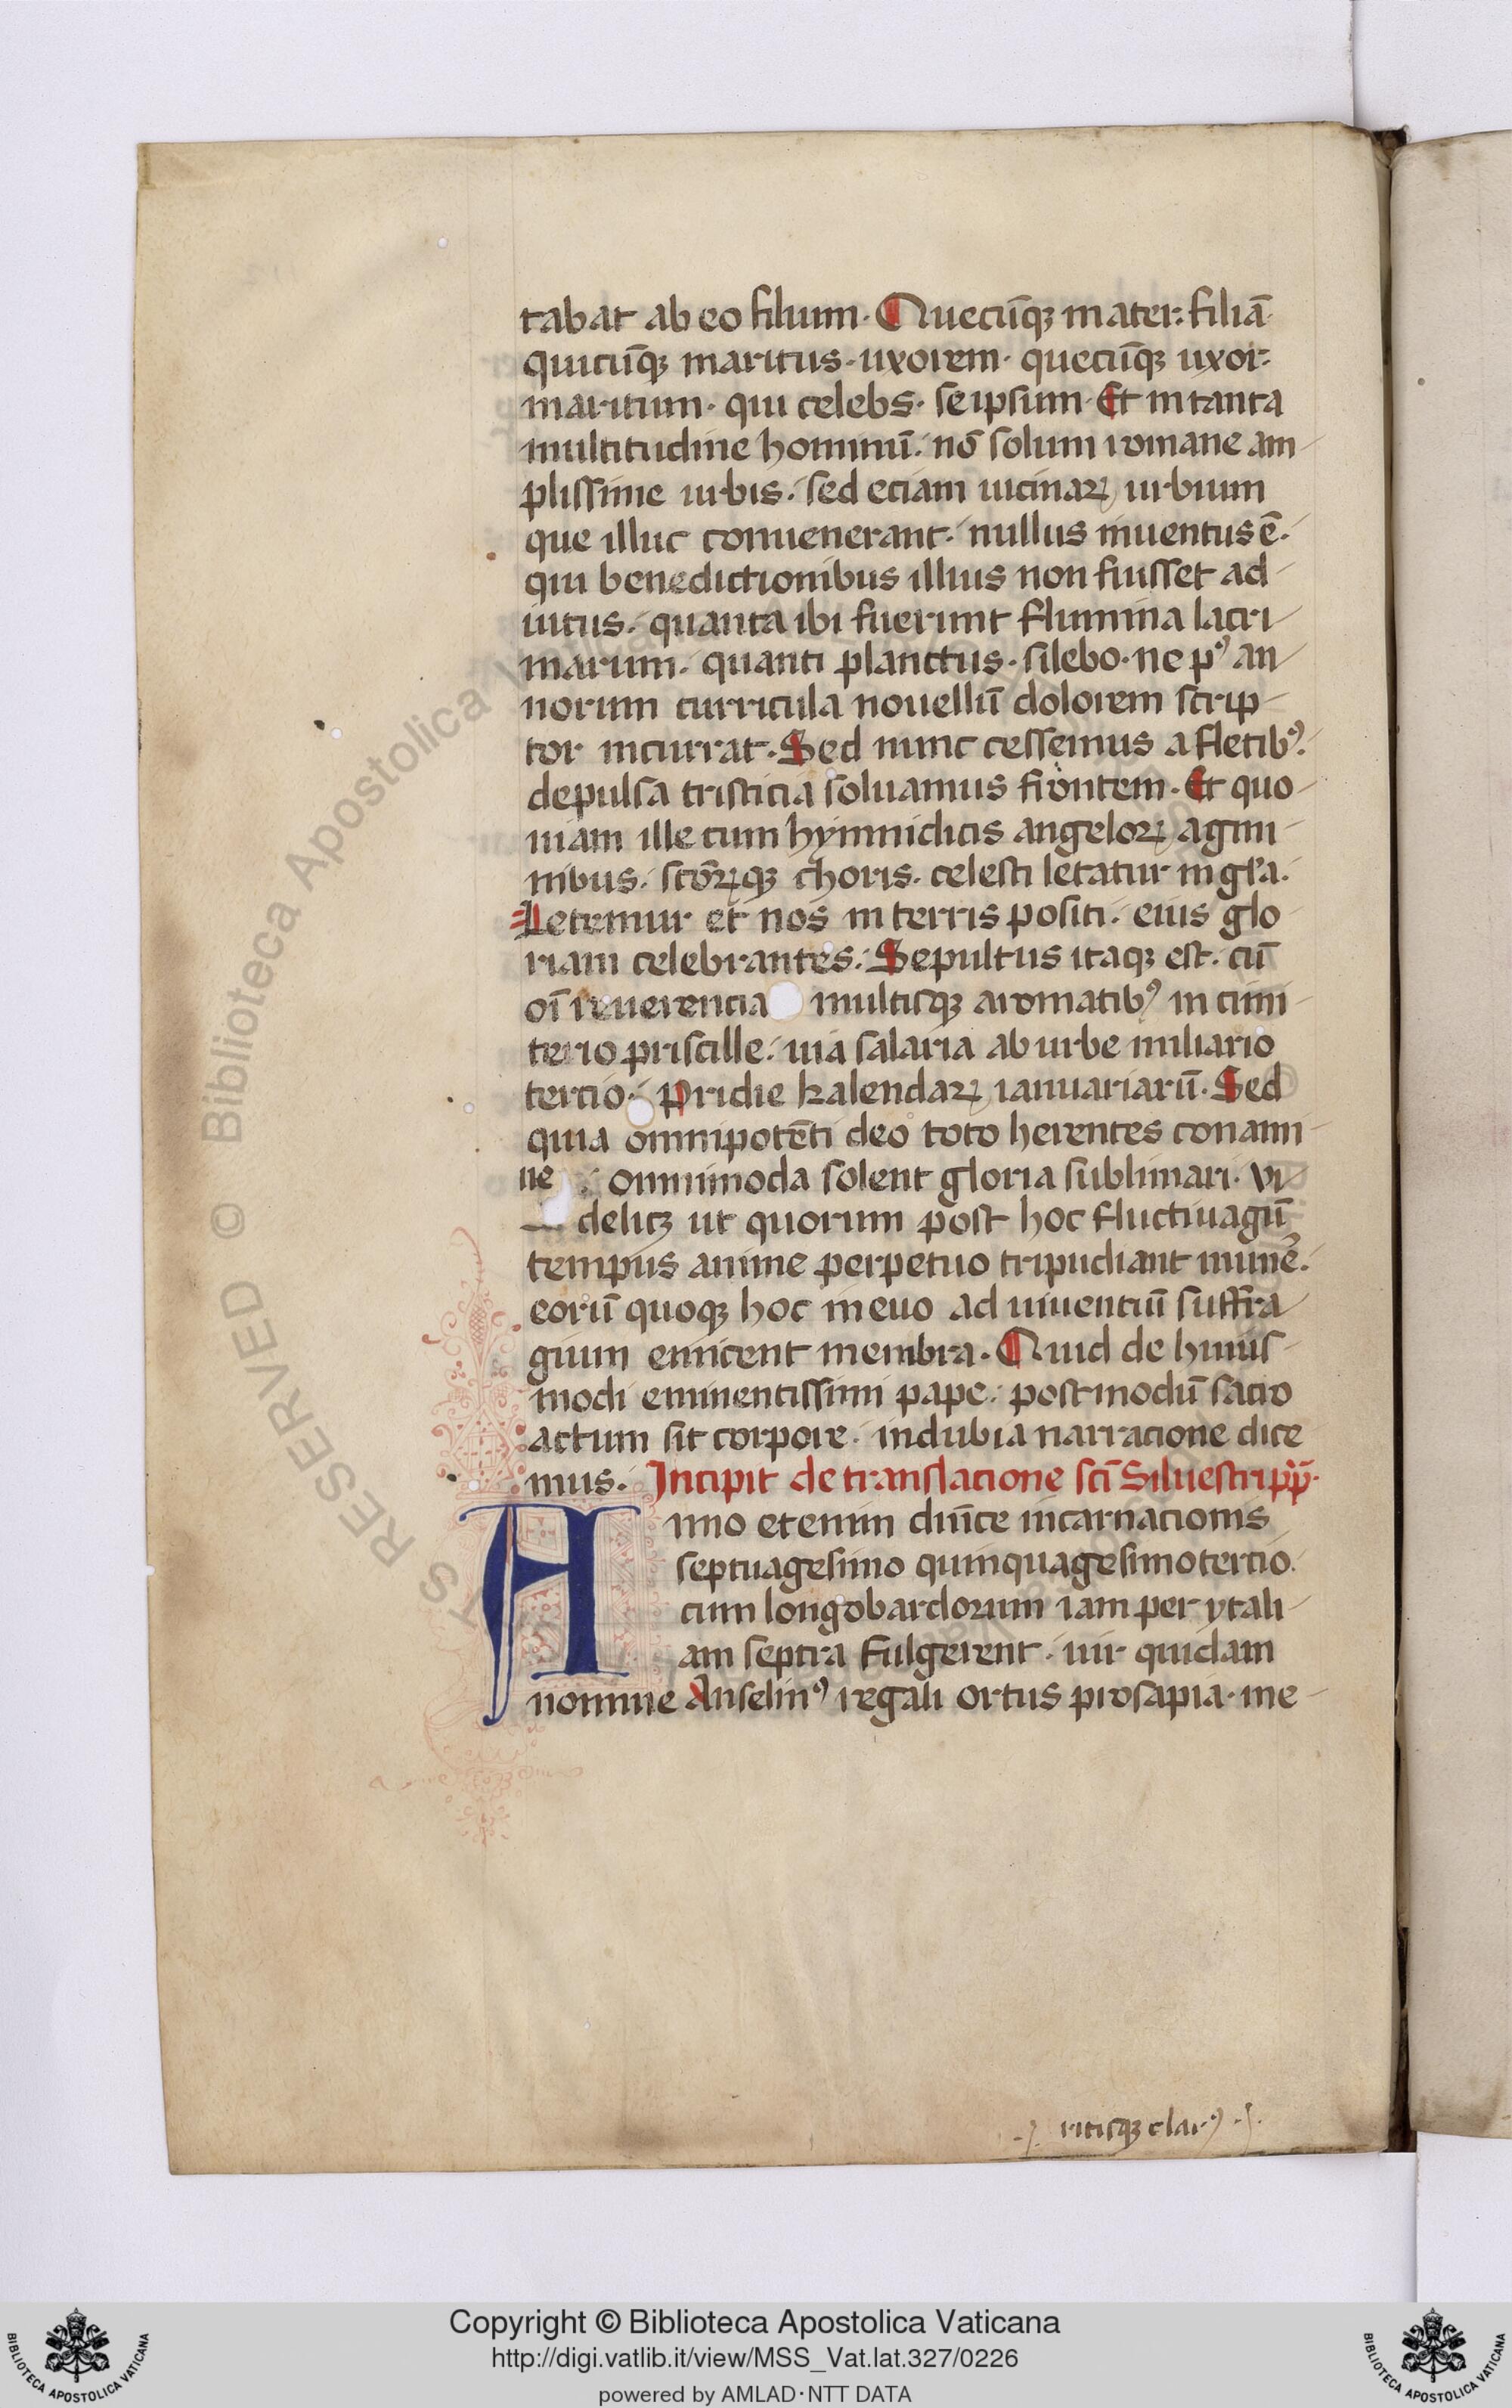 tabat ab eo filium. Quecūqꝫ mater: filiā
quicūqꝫ maritus. uxorem. quecūqꝫ uxor.
maritum. qui celebs. seipsum. Et in tanta
multitudine hominū. nō solum romane am
plissime urbis. sed eciam uicinaꝝ urbium
que illuc conuenerant. nullus inuentus ē.
qui benedictionibus illius non fuisset ad
iutus. quanta ibi fuerunt flumina lacri
marum. quanti planctus. silebo. ne pꝰ an
norum curricula nouellū dolorem scrip
tor incurrat. Sed nunc cessemus a fletibꝰ.
depulsa tristicia soluamus frontem. Et quo
niam ille cum hymnidicis angeloꝝ agmi
nibus. sctōꝝqꝫ choris. celesti letatur in gl'a.
Letemur et nos in terris positi. eius glo
riam celebrantes. Sepultus itaqꝫ est. cū
oī reuerencia multisqꝫ aromatibꝰ in cimi
terio priscille. uia salaria ab urbe miliario
tercio. Pridie kalendaꝝ ianuariarū. Sed
quia omnipotēti deo toto herentes conami
ne omnimoda solent gloria sublimari. Vi
delicꝫ ut quorum post hoc fluctiuagū
tempus anime perpetuo tripudiant munē.
eorū quoqꝫ hoc in euo ad uiuenciū suffra
gium enitent membra. Quid de huius
modi eminentissimi pape. postmodū sacro
actum sit corpore. indubia narracione dice
mus. Incipit de translacione scī Siluestri pp̄.
Anno etenim diuīce incarnacionis
septuagesimo quinquagesimo tercio.
cum longobardorum iam per ytali
am septra fulgerent. uir quidam
nomine Anselmꝰ regali ortus prosapia. me
ritisqꝫ clarꝰ
RESERVED © Biblioteca Apostolica
Copyright © Biblioteca Apostolica Vaticana
http://digi.vatlib.it/view/MSS_Vat.lat.327/0226
powered by AMLAD·NTT DATA
BIBLIOTECA APOSTOLICA VATICANA
BIBLIOTECA APOSTOLICA VATICANA